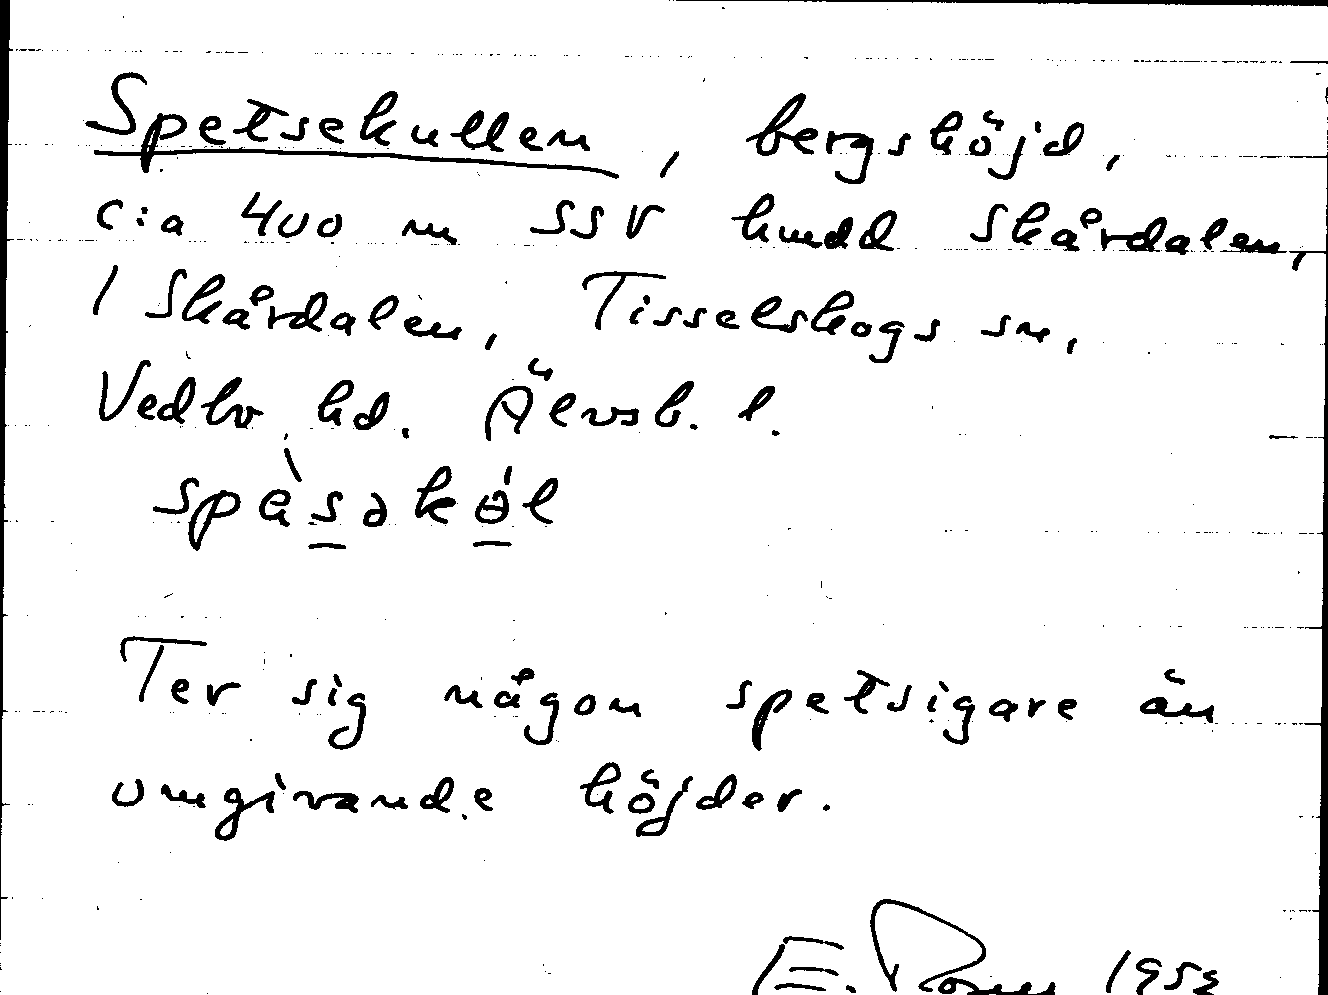 Spetsekullen, bergshöjd,
c:a 400 m SSV huvudd Skårdalen,
1 Skårdalen, Tisselskogs sn,
Vedbo hd. Älvsb. l.
spèsəkɵ́l
Ter sig någon spetsigare än
omgivande höjder.
E. 195